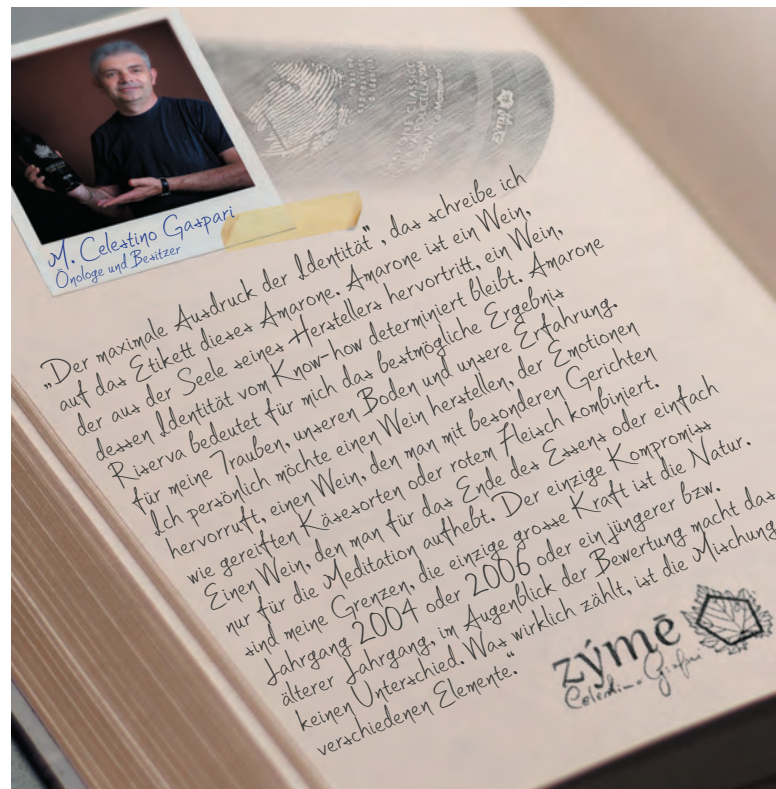 M. Celestino Gaspari
Önologe und Besitzer
„Der maximale Ausdruck der Identität“, das schreibe ich
auf das Etikett dieses Amarone. Amarone ist ein Wein,
der aus der Seele seines Herstellers hervortritt, ein Wein,
dessen Identität vom Know-how determiniert bleibt. Amarone
Riserva bedeutet für mich das bestmögliche Ergebnis
für meine Trauben, unseren Boden und unsere Erfahrung.
Ich persönlich möchte einen Wein herstellen, der Emotionen
hervorruft, einen Wein, den man mit besonderen Gerichten
wie gereiften Käsesorten oder rotem Fleisch kombiniert.
Einen Wein, den man für das Ende des Essens oder einfach
nur für die Meditation aufhebt. Der einzige Kompromiss
sind meine Grenzen, die einzige grosse Kraft ist die Natur.
Jahrgang 2004 oder 2006 oder ein jüngerer bzw.
älterer Jahrgang, im Augenblick der Bewertung macht das
keinen Unterschied. Was wirklich zählt, ist die Mischung
verschiedenen Elemente.“
zýmē
Celestino Gaspari